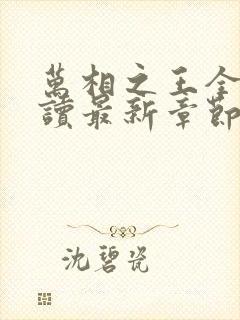 萬相之王全
讀最新章節
沈碧瓷